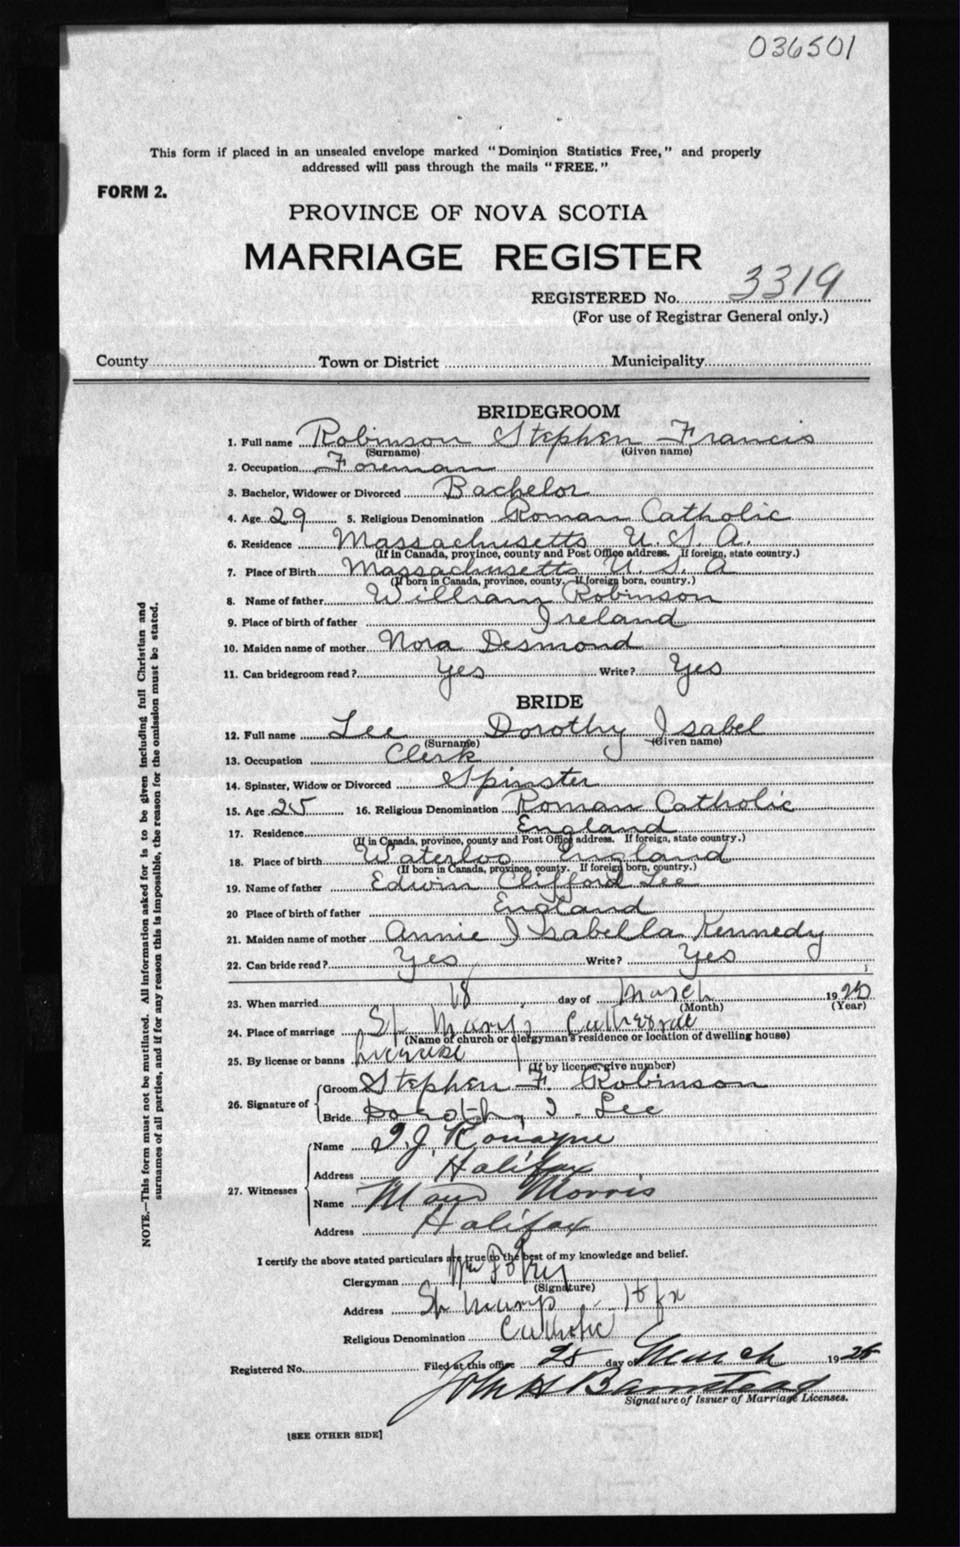 036501
This form if placed in an unsealed envelope marked "Dominion Statistics Free," and properly
addressed will pass through the mails "FREE."
FORM 2.
PROVINCE OF NOVA SCOTIA
MARRIAGE REGISTER
REGISTERED No. 3319
(For use of Registrar General only.)
County Town or District Municipality
BRIDEGROOM
1. Full name Robinson Stephen Francis
(Surname) (Given name)
2. Occupation Foreman
3. Bachelor, Widower or Divorced Bachelor
4. Age 29 5. Religious Denomination Roman Catholic
6. Residence Massachusetts U.S.A.
(If in Canada, province, county and Post Office address. If foreign, state country.)
7. Place of Birth Massachusetts U.S.A
(If born in Canada, province, county. If foreign born, country.)
8. Name of father William Robinson
9. Place of birth of father Ireland
10. Maiden name of mother Nora Desmond
11. Can bridegroom read? Yes Write? Yes
BRIDE
12. Full name Lee Dorothy Isabel
(Surname) (Given name)
13. Occupation Clerk
14. Spinster, Widow or Divorced Spinster
15. Age 25 16. Religious Denomination Roman Catholic
17. Residence England
(If in Canada, province, county and Post Office address. If foreign, state country.)
18. Place of birth Waterloo England
(If born in Canada, province, county. If foreign born, country.)
19. Name of father Edwin Clifford Lee
20 Place of birth of father England
21. Maiden name of mother Annie Isabella Kennedy
22. Can bride read? Yes Write? Yes
23. When married 18 day of March 19
(Month) (Year)
24. Place of marriage St. Mary's Cathedral
(Name of church or clergyman's residence or location of dwelling house)
25. By license or banns License
(If by license, give number)
26. Signature of Groom Stephen F. Robinson
Bride Dorothy I. Lee
27. Witnesses Name J. Ronayne
Address Halifax
Name Morris
Address Halifax
I certify the above stated particulars are true to the best of my knowledge and belief.
Clergyman Wm
(Signature)
Address St Marys Hfx
Religious Denomination Catholic
Registered No. Filed at this office 25 day of March 19
John H Barnstead
Signature of Issuer of Marriage Licenses.
[SEE OTHER SIDE]
NOTE.—This form must not be mutilated. All information asked for is to be given including full Christian and
surnames of all parties, and if for any reason this is impossible, the reason for the omission must be stated.